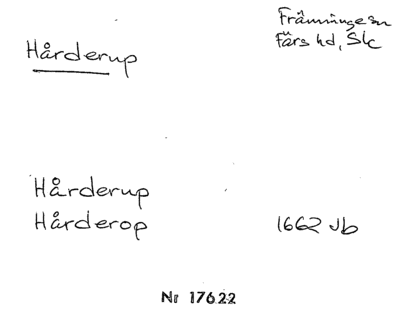 Hårderup
Främminge sn
Färs hd, Sk
Hårderup
Hårderop 1662 Jb
Nr 17622